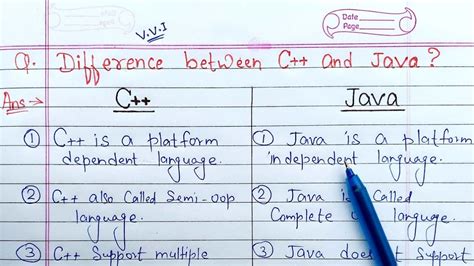 V.V.I
Date
Page
Q. Difference between C++ and Java?
Ans →
C++
Java
① C++ is a platform
dependent language.
① Java is a platform
independent language.
② C++ also Called Semi-oop
language.
② Java is Called
Complete language.
③ C++ Support multiple
③ Java does Support